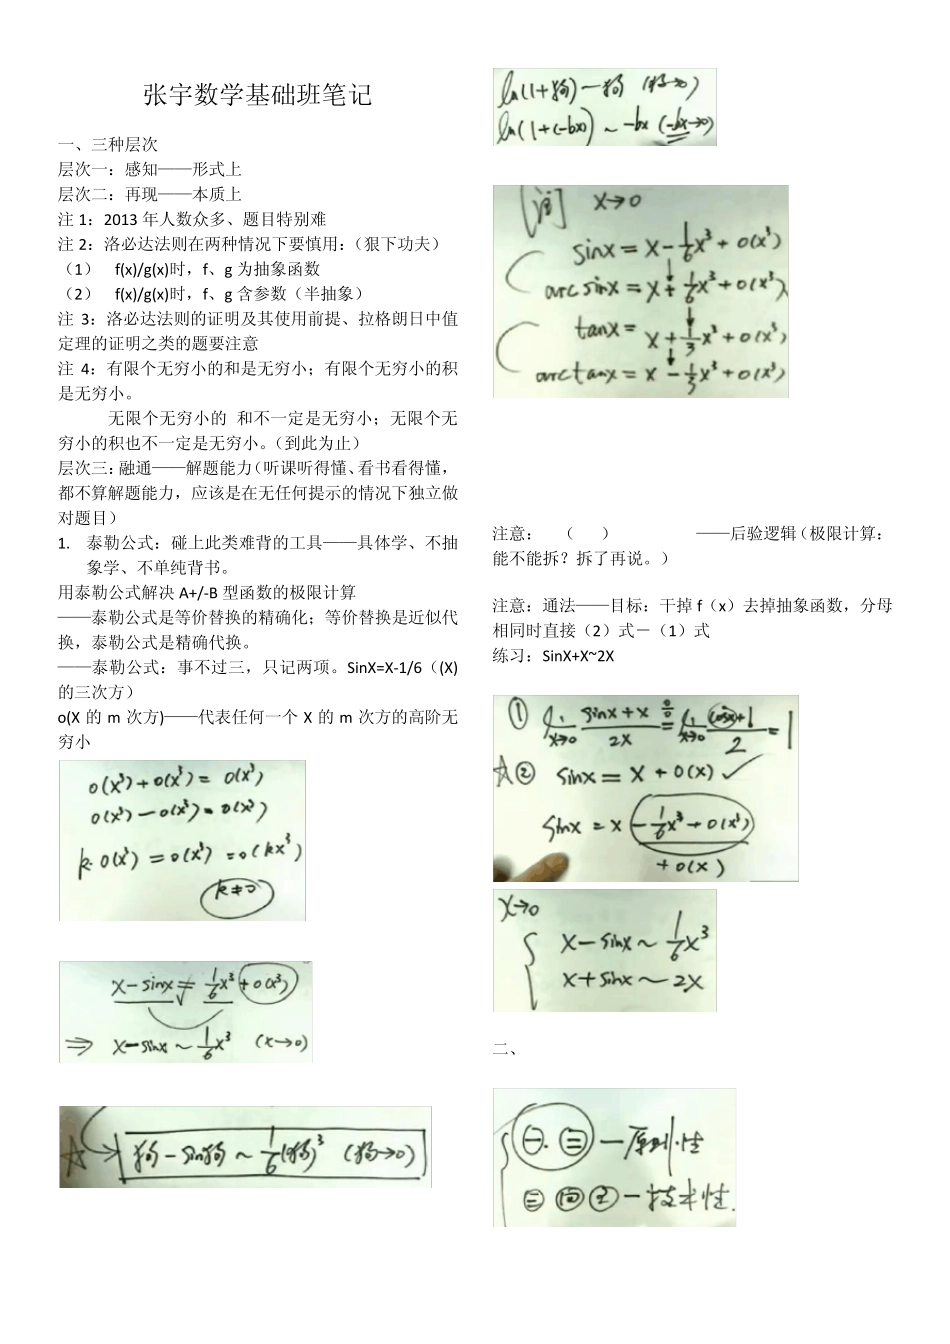 张宇数学基础班笔记
一、三种层次
层次一：感知——形式上
层次二：再现——本质上
注 1：2013 年人数众多、题目特别难
注 2：洛必达法则在两种情况下要慎用：（狠下功夫）
（1） f(x)/g(x)时，f、g 为抽象函数
（2） f(x)/g(x)时，f、g 含参数（半抽象）
注 3：洛必达法则的证明及其使用前提、拉格朗日中值
定理的证明之类的题要注意
注 4：有限个无穷小的和是无穷小；有限个无穷小的积
是无穷小。
无限个无穷小的 和不一定是无穷小；无限个无
穷小的积也不一定是无穷小。（到此为止）
层次三：融通——解题能力（听课听得懂、看书看得懂，
都不算解题能力，应该是在无任何提示的情况下独立做
对题目）
1. 泰勒公式：碰上此类难背的工具——具体学、不抽
象学、不单纯背书。
用泰勒公式解决 A+/-B 型函数的极限计算
——泰勒公式是等价替换的精确化；等价替换是近似代
换，泰勒公式是精确代换。
——泰勒公式：事不过三，只记两项。SinX=X-1/6（(X)
的三次方）
o(X 的 m 次方)——代表任何一个 X 的 m 次方的高阶无
穷小
o(x³)+o(x³)= o(x³)
o(x³)-o(x³)=o(x³)
k·o(x³)=o(x³)=o(kx³)
k≠0
x-sinx=1/6x³+o(x³)
⇒ x-sinx~1/6x³ (x→0)
☆ 狗-sin狗~1/6(狗)³ (狗→0)
ln(1+狗)~狗 (狗→0)
ln(1+(-bx))~-bx (-bx→0)
[注] x→0
sinx=x-1/6x³+o(x³)
arcsinx=x+1/6x³+o(x³)
tanx=x+1/3x³+o(x³)
arctanx=x-1/3x³+o(x³)
注意： （ ） ——后验逻辑（极限计算：
能不能拆？拆了再说。）
注意：通法——目标：干掉 f（x）去掉抽象函数，分母
相同时直接（2）式－（1）式
练习：SinX+X~2X
① lim x→0 sinx+x/2x 0/0= lim x→0 cosx+1/2=1
☆② sinx=x+o(x) ✓
sinx=x-1/6x³+o(x³)
+o(x)
x→0
x-sinx~1/6x³
x+sinx~2x
二、
㊀.㊁—原则性
㊂㊃㊄—技术性.